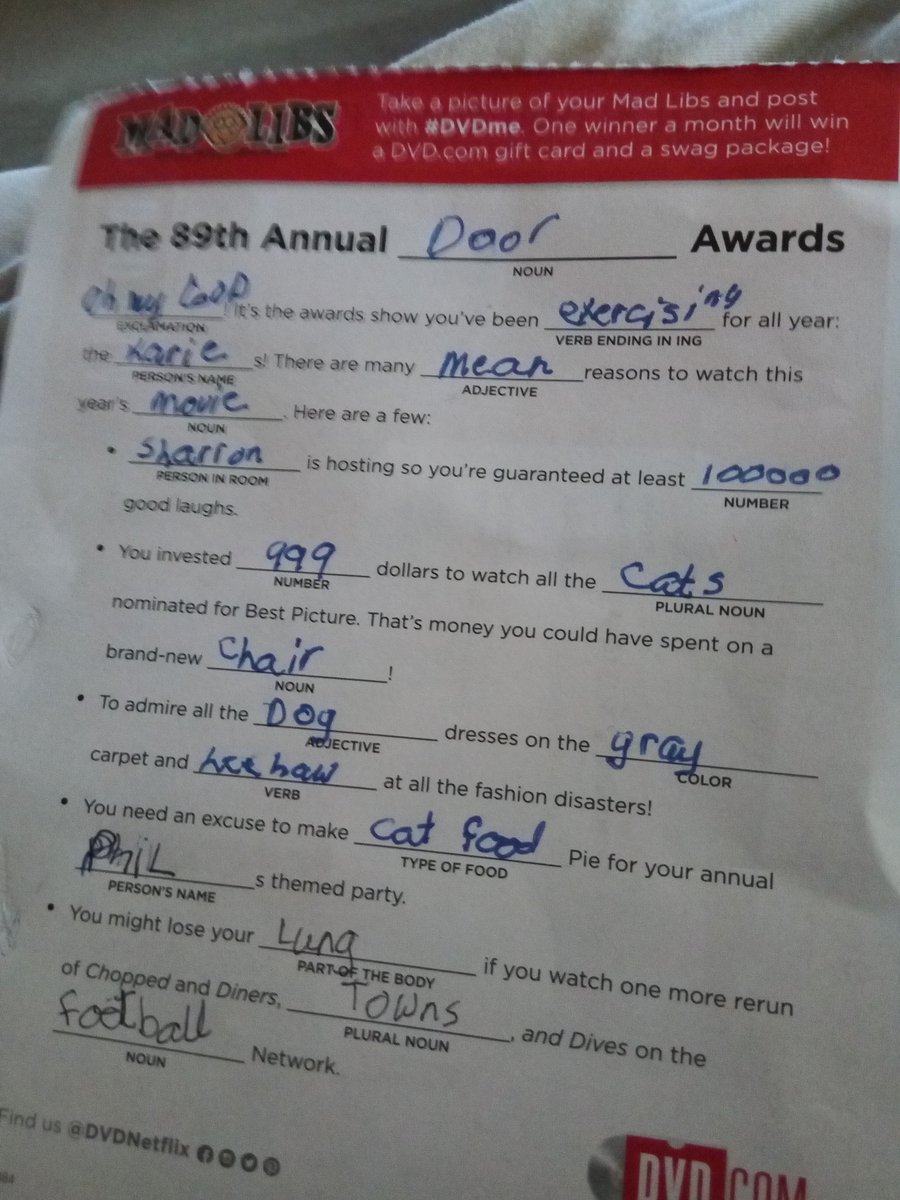 MAD LIBS
Take a picture of your Mad Libs and post
with #DVDme. One winner a month will win
a DVD.com gift card and a swag package!
The 89th Annual Door Awards
NOUN
oh my Goop! It's the awards show you've been exercising for all year:
EXCLAMATION VERB ENDING IN ING
the Karie s! There are many mean reasons to watch this
PERSON'S NAME ADJECTIVE
year's movie. Here are a few:
NOUN
• Sharron is hosting so you're guaranteed at least 100000
PERSON IN ROOM NUMBER
good laughs.
• You invested 999 dollars to watch all the Cats
NUMBER PLURAL NOUN
nominated for Best Picture. That's money you could have spent on a
brand-new Chair!
NOUN
• To admire all the Dog dresses on the gray
ADJECTIVE COLOR
carpet and heehaw at all the fashion disasters!
VERB
• You need an excuse to make cat food Pie for your annual
TYPE OF FOOD
PhiL s themed party.
PERSON'S NAME
• You might lose your Lung if you watch one more rerun
PART OF THE BODY
of Chopped and Diners, Towns, and Dives on the
PLURAL NOUN
football Network.
NOUN
Find us @DVDNetflix
DVD.COM